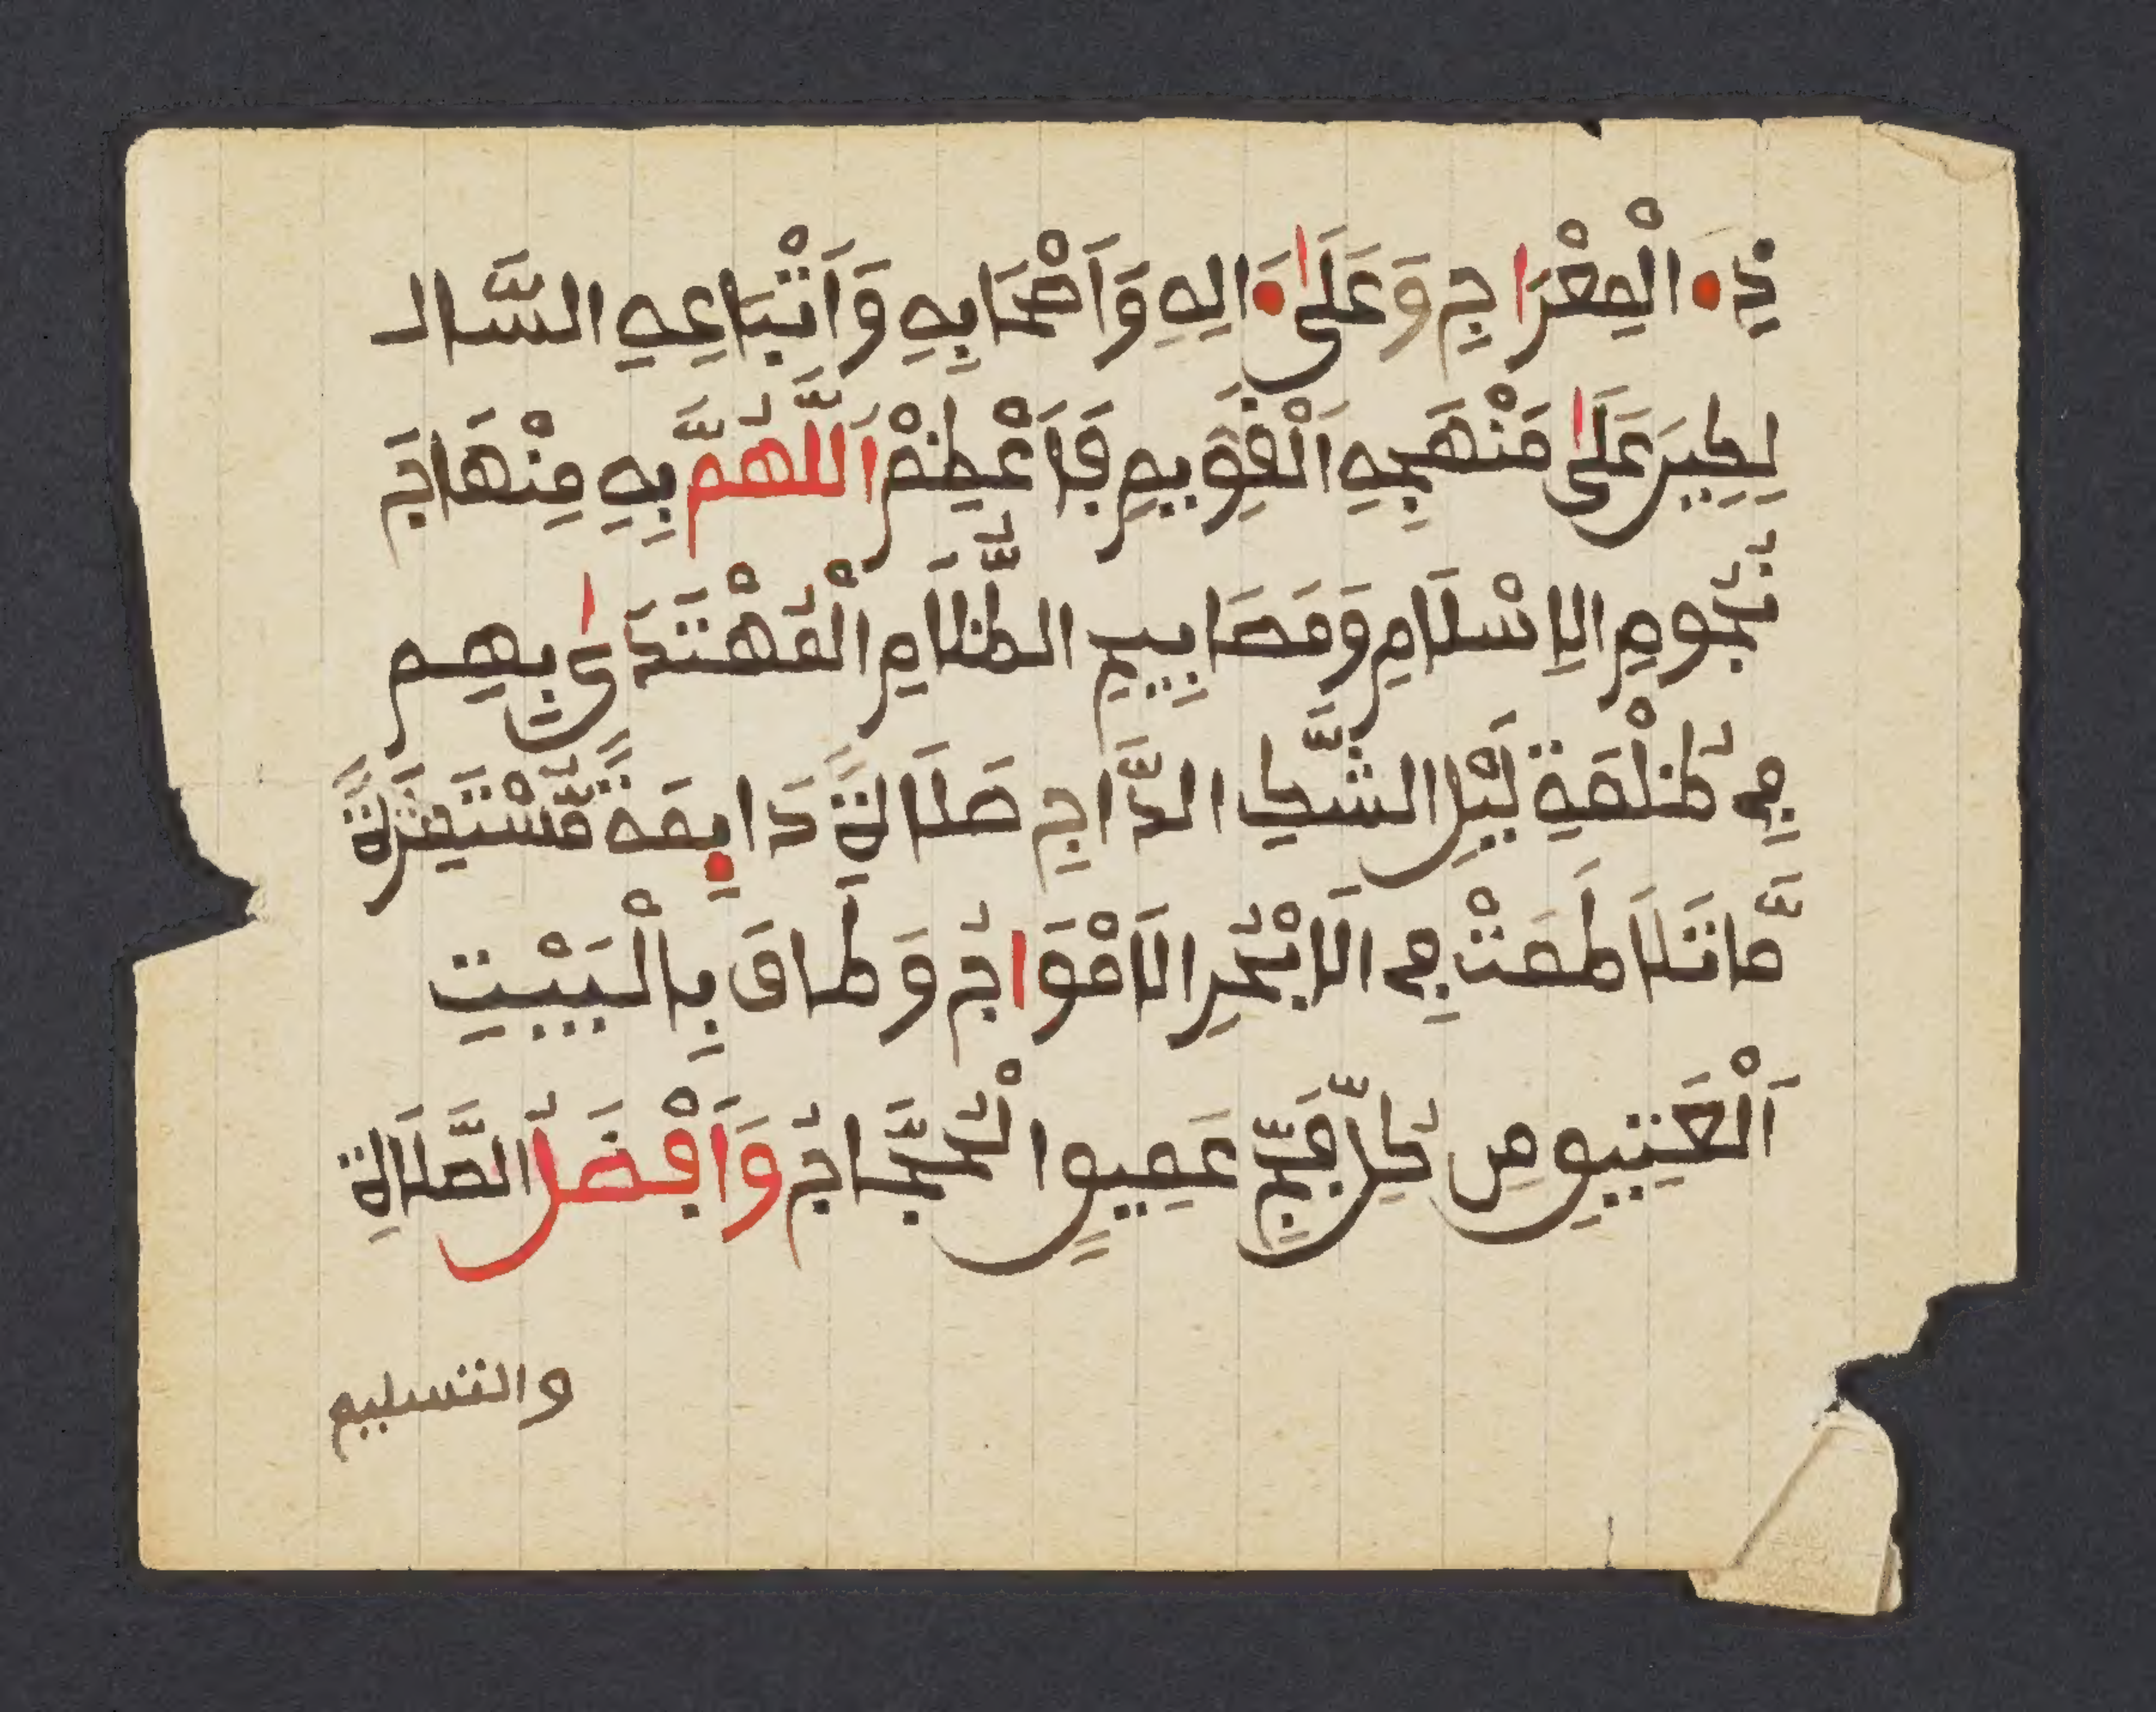 الْمِعْرَاجِ وَعَلَىٰ ءَالِهِ وَأَصْحَابِهِ وَأَتْبَاعِهِ السَّالِ
لِكِينَ عَلَىٰ مَنْهَجِهِ الْقَوِيمِ فَأَعْظِمْ اَللَّهُمَّ بِهِ مِنْهَاجَ
نُجُومِ الْاِسْلَامِ وَمَصَابِيحِ الظُّلَامِ الْمُهْتَدَىٰ بِهِم
فِي ظُلْمَةِ لَيْلِ الشَّكِّ الدَّاجِ صَلَاةً دَائِمَةً مُّسْتَمِرَّةً
مَّا تَلَاطَمَتْ فِي الَابْحُرِ الَامْوَاجُ وَطَافَ بِالْبَيْتِ
اَلْعَتِيقِ مِن كُلِّ فَجٍّ عَمِيقٍ الْحُجَّاجُ وَأَفْضَلُ الصَّلَاةِ
والتسليم